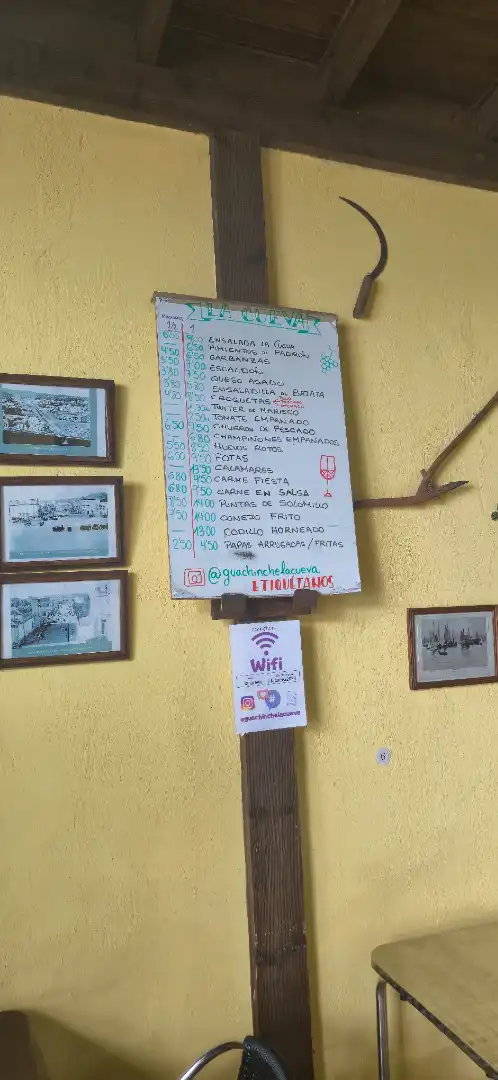 LA CUEVA
1/2 1
ENSALADA LA CUEVA
6'50 PIMIENTOS D PADRÓN
4'50 6'50 GARBANZAS
ESCALDÓN
3'80 7'50 QUESO ASADO
ENSALADILLA O BATATA
CROQUETAS
TARTER DE MARISCO
TOMATE EMPANADO
6'50 9'50 CHURROS DE PESCADO
CHAMPIÑONES EMPANADOS
5'50 8'50 HUEVOS ROTOS
POTAS
13'50 CALAMARES
6'80 9'50 CARNE FIESTA
6'80 9'50 CARNE EN SALSA
14'00 PUNTAS DE SOLOMILLO
7'50 14'00 CONEJO FRITO
13'00 CODILLO HORNEADO
2'50 4'50 PAPAS ARRUGADAS/FRITAS
@guachinchelacueva
ETIQUÉTANOS
Wifi
@guachinchelacueva
6